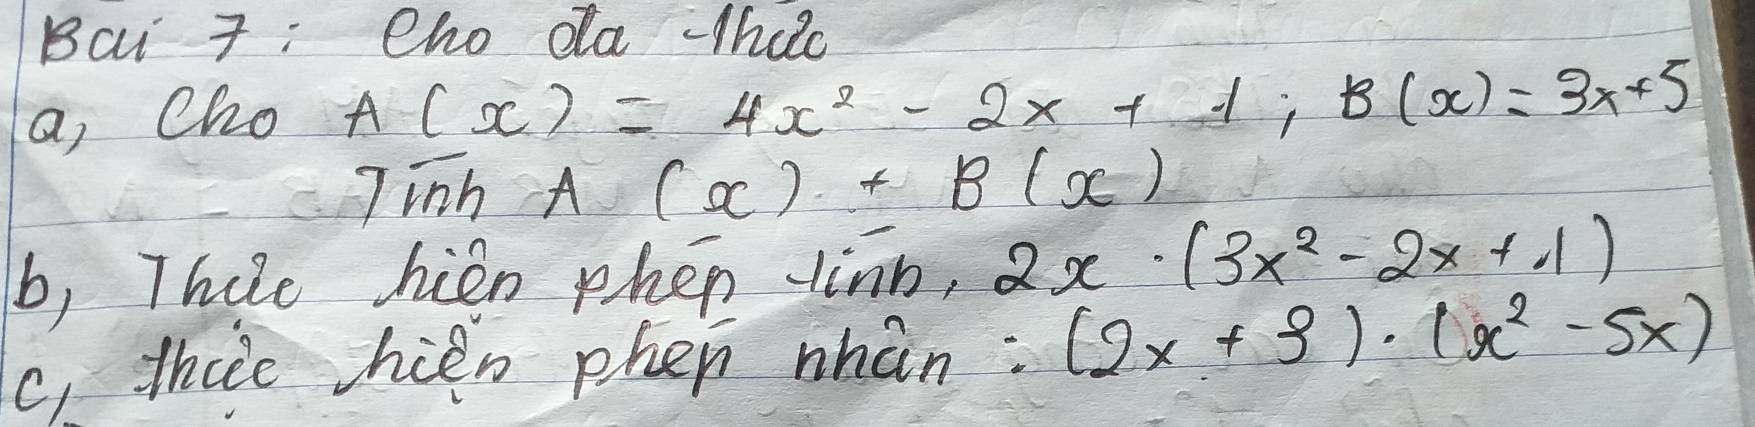 Bài 7 : Cho đa thức
a, Cho A(x) = 4x² - 2x + 1 ; B(x) = 3x+5
Tính A (x) + B (x)
b, Thực hiện phép tính, 2x . (3x² - 2x + 1)
c, thực hiện phép nhân : (2x + 3) . (x² - 5x)